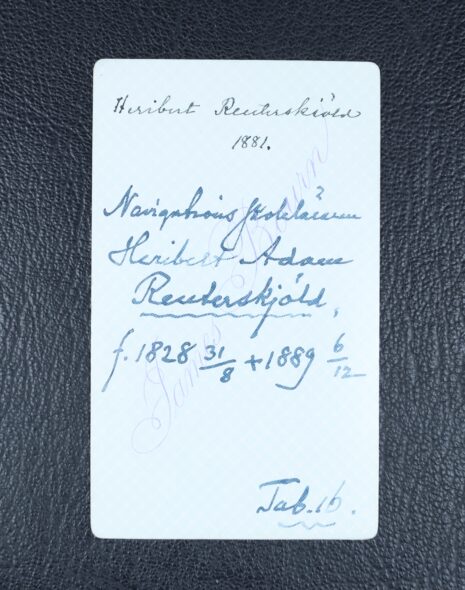 Heribert Reuterskiöld
1881.
Navigationsskoleläraren
Heribert Adam
Reuterskjöld.
f. 1828 31/8 + 1889 6/12
Tab. 16.